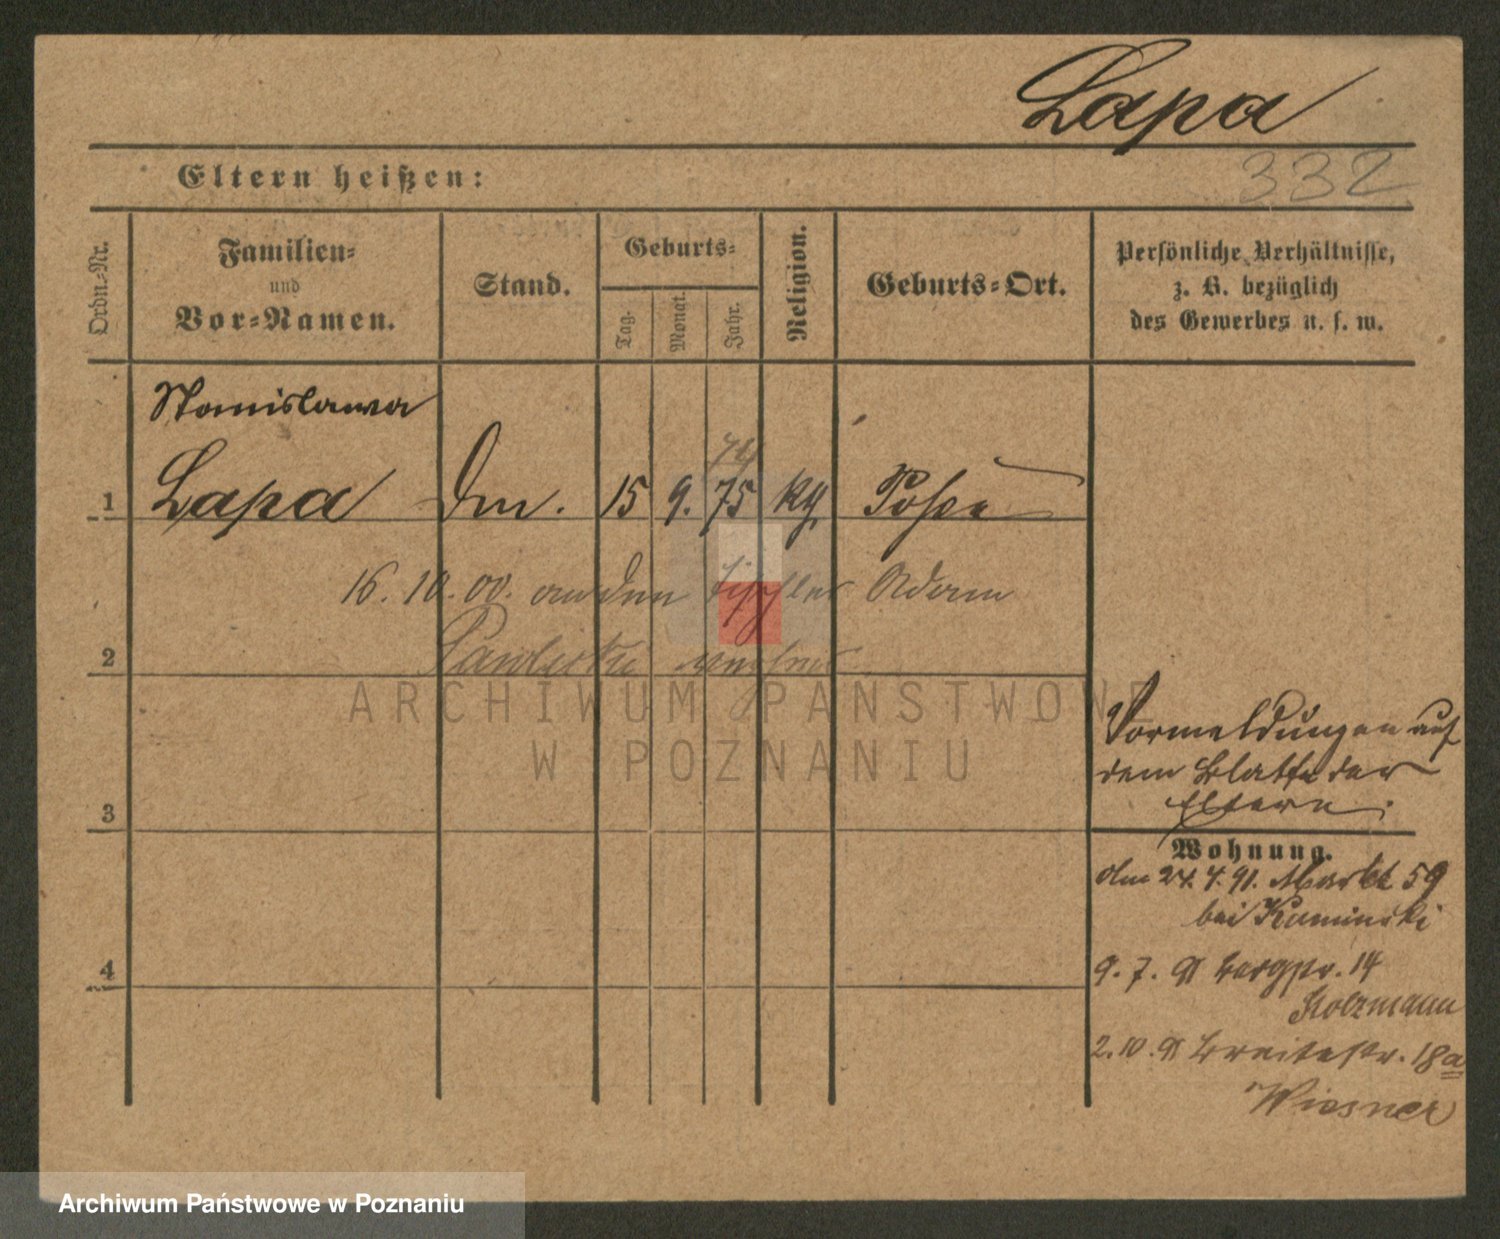 Lapa
332
Eltern heißen:
Ordn.-Nr.
Familien-
und
Vor-Namen.
Stand.
Geburts-
Tag.
Monat.
Jahr.
Religion.
Geburts-Ort.
Persönliche Verhältnisse,
z. B. bezüglich
des Gewerbes u. s. w.
Stanislawa
74
1 Lapa 15 9. 75 kth Posen
16. 10. 00. an den Tischler Adam
2
ARCHIWUM PAŃSTWOWE
W POZNANIU
Vormeldungen auf
dem Blatte der
Eltern.
3
Wohnung.
24. 4. 91. Markt 59
bei Kaminski
4
9. 7. 91 Bergstr. 14
Holzmann
2. 10. 91 Breitestr. 18a
Wiesner
Archiwum Państwowe w Poznaniu